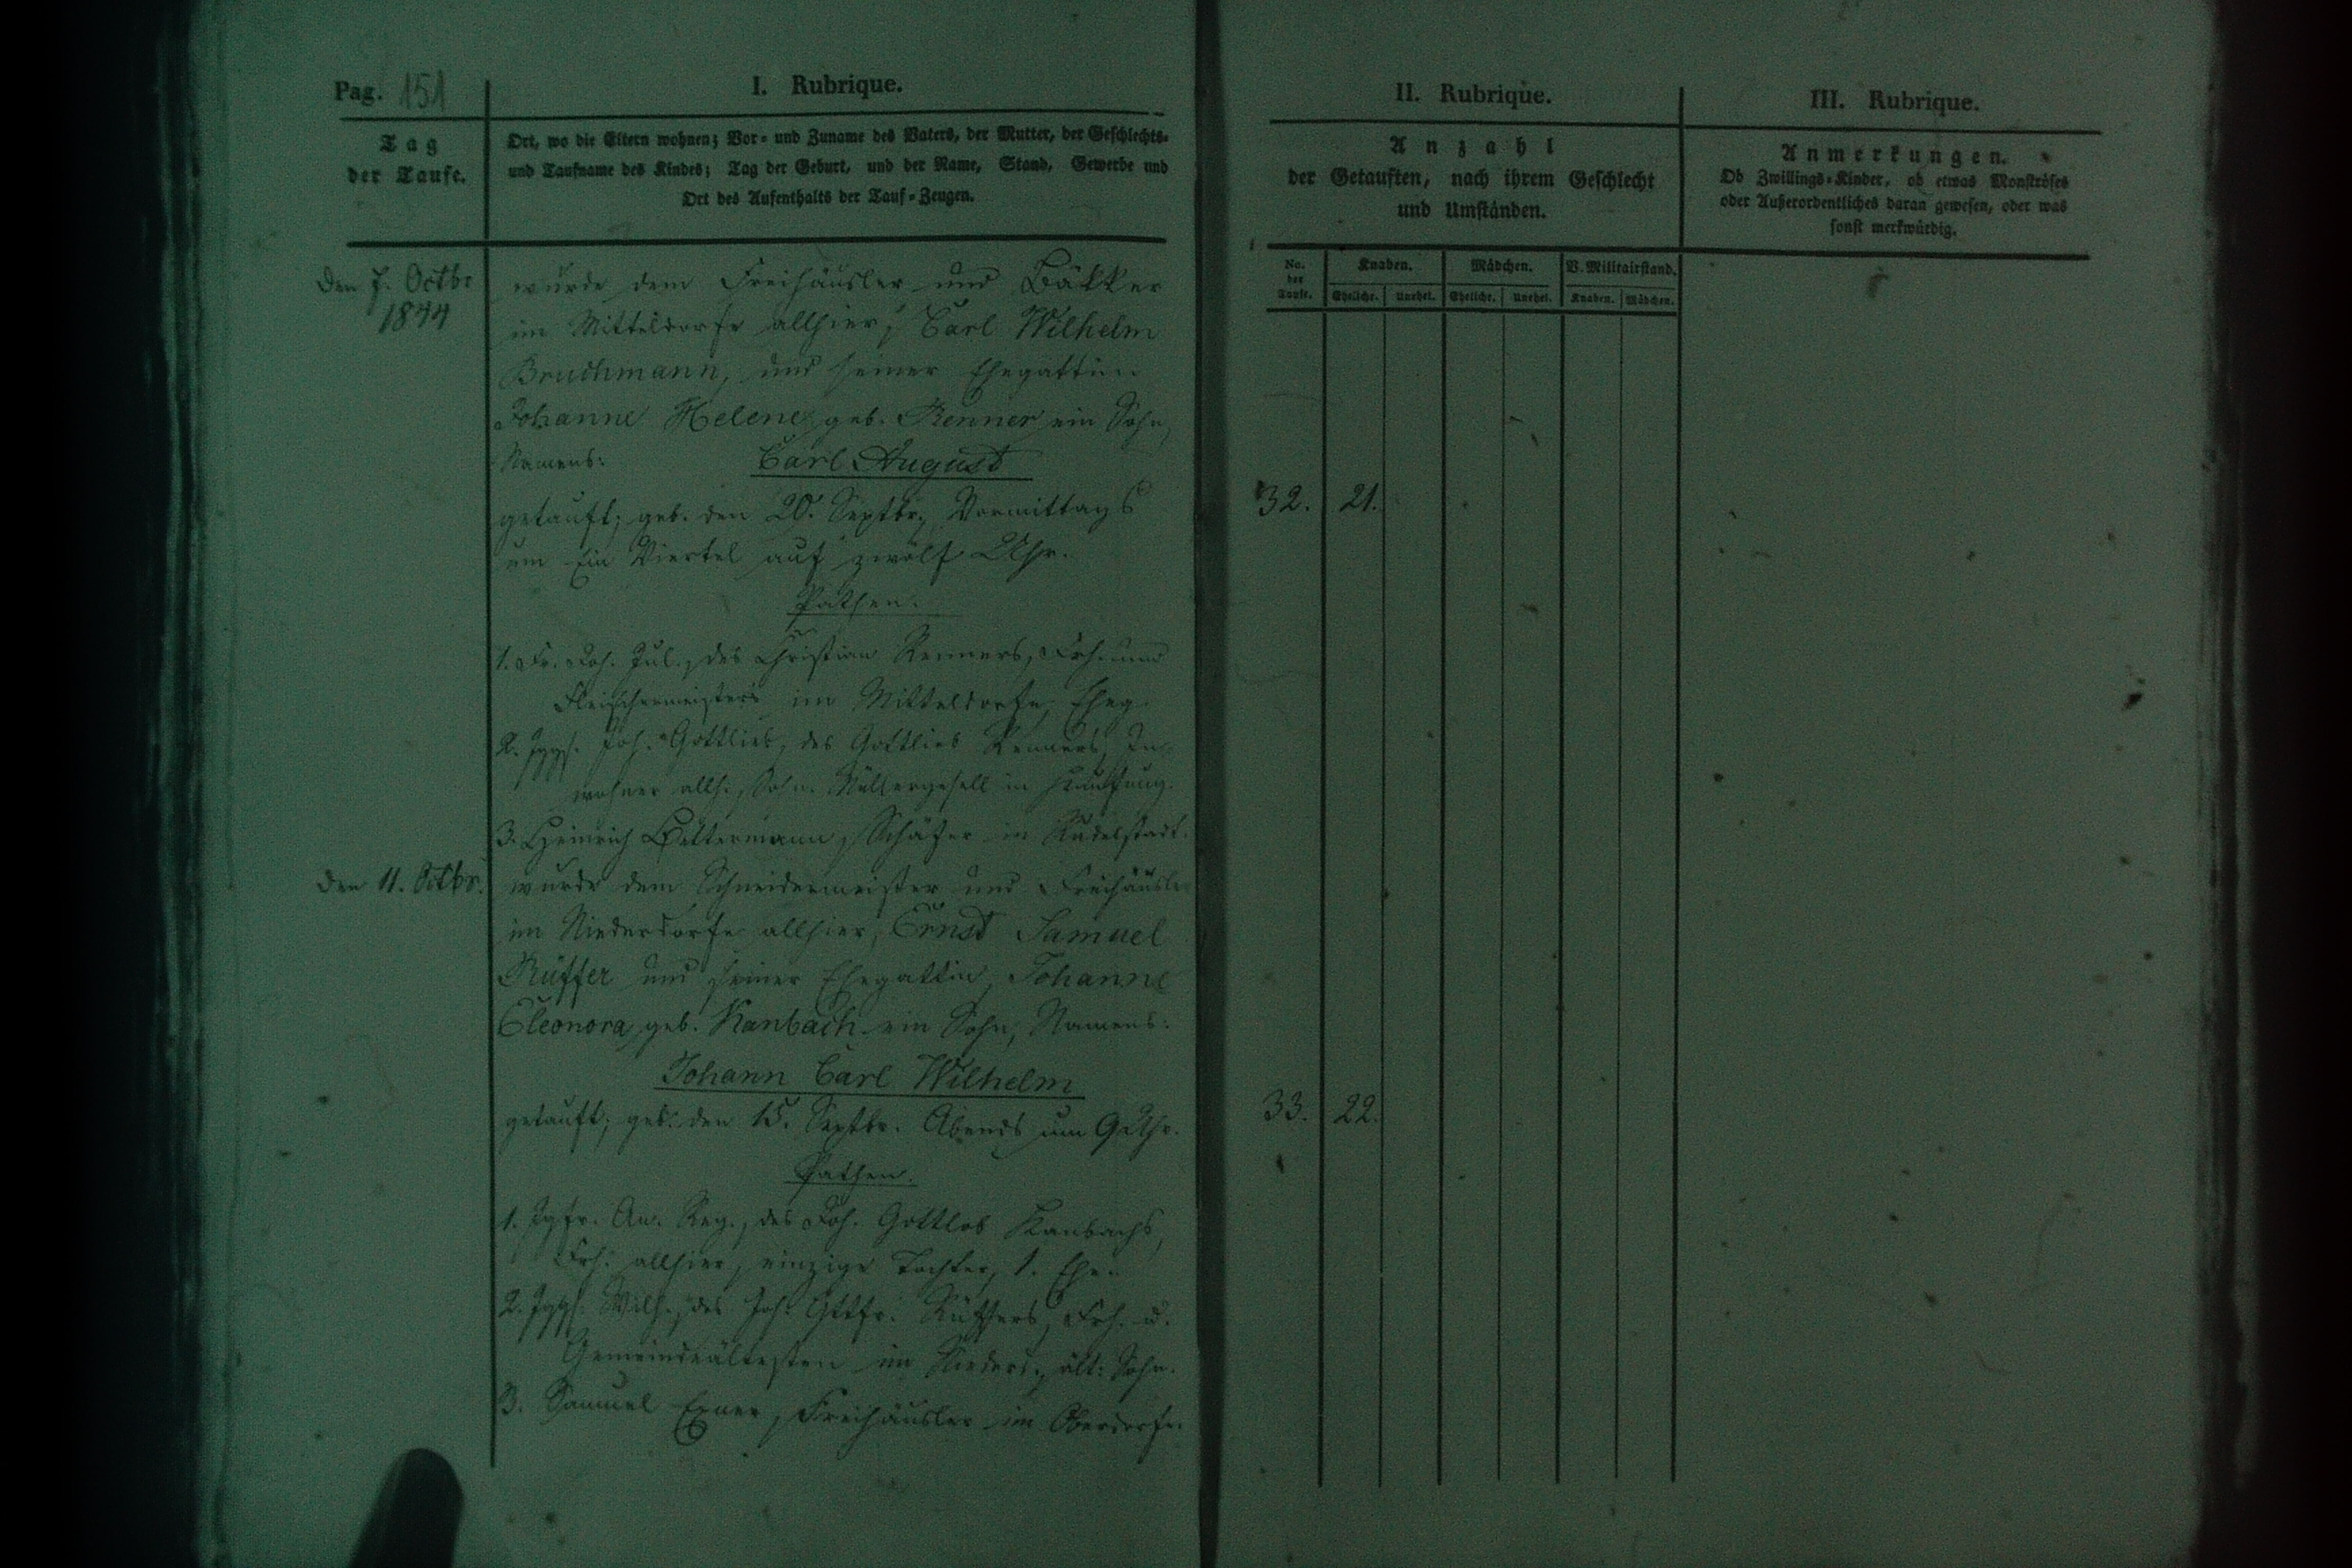 Pag. 151
I. Rubrique.
Tag
der Taufe.
Ort, wo die Eltern wohnen; Vor- und Zuname des Vaters, der Mutter, der Geschlechts-
und Taufname des Kindes; Tag der Geburt, und der Name, Stand, Gewerbe und
Ort des Aufenthalts der Tauf-Zeugen.
Den 7. Octbr
1844
wurde dem Freihäusler und Bäkker
im Mitteldorfe allhier, Carl Wilhelm
Bruchmann, und seiner Ehegattin
Johanne Helene, geb. Renner, ein Sohn,
Namens:
Carl August
getauft; geb. den 20. Septbr., Vormittags
um Ein Viertel auf zwölf Uhr.
Pathen:
1. Fr. Joh. Jul., des Christian Renners, Frh. und
Fleischermeisters im Mitteldorfe, Eheg.
2. Jggs. Joh. Gottlieb, des Gottlieb Renners, In-
wohner allh., Sohn. Müllergesell in
3. Heinrich Schäfer in Rudelstadt.
Den 11. Octbr.
wurde dem Schneidermeister und Freihäusler
im Niederdorfe allhier, Ernst Samuel
Rüffer und seiner Ehegattin, Johanne
Eleonora, geb. Kanbach ein Sohn, Namens:
Johann Carl Wilhelm
getauft; geb. den 15. Septbr. Abends um 9 Uhr.
Pathen.
1. Jgfr. An. Reg., des Joh. Gottlob Kanbachs,
Frh. allhier, einzige Tochter, 1. Ehe.
2. Jggs. Wilh., des Joh. Gttfr. Rüffers, Frh. u.
Gemeindeältesten im Niederd., ält. Sohn.
3. Samuel Exner, Freihäusler im Oberdorfe.
II. Rubrique.
Anzahl
der Getauften, nach ihrem Geschlecht
und Umständen.
No. der Taufe.
Knaben.
Mädchen.
V. Militairstand.
Eheliche. Unehel. Eheliche. Unehel. Knaben. Mädchen.
32. 21.
33. 22.
III. Rubrique.
Anmerkungen.
Ob Zwillings-Kinder, ob etwas Monströses
oder Außerordentliches daran gewesen, oder was
sonst merkwürdig.